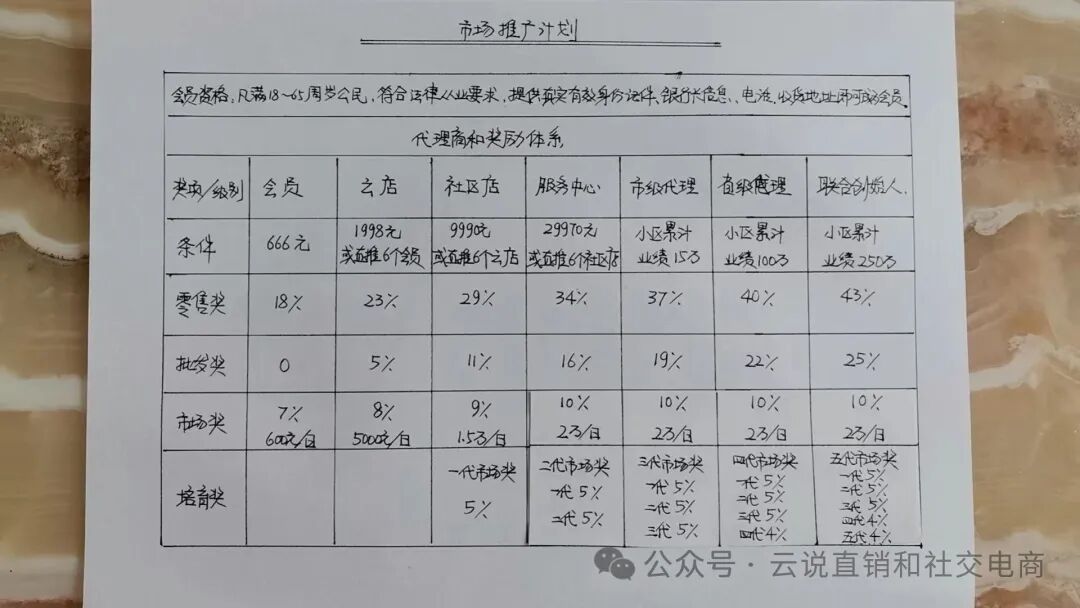 市场推广计划
会员资格,凡满18~65周岁公民,符合法律从业要求,提供真实有效身份证件、银行卡信息、电话、收货地址即可成会员
代理商和奖励体系
奖项/级别 会员 云店 社区店 服务中心 市级代理 省级代理 联合创始人.
条件 666元 1998元 9990元 29970元 小区累计 小区累计 小区累计
或直推6个会员 或直推6个云店 或直推6个社区店 业绩15万 业绩100万 业绩250万
零售奖 18% 23% 29% 34% 37% 40% 43%
批发奖 0 5% 11% 16% 19% 22% 25%
市场奖 7% 8% 9% 10% 10% 10% 10%
600元/日 5000元/日 1.5万/日 2万/日 2万/日 2万/日 2万/日
培育奖 一代市场奖 二代市场奖 三代市场奖 四代市场奖 五代市场奖
5% 一代5% 一代5% 一代5% 一代5%
二代5% 二代5% 二代5% 二代5%
三代5% 三代5% 三代5%
四代4% 四代4%
五代4%
公众号·云说直销和社交电商